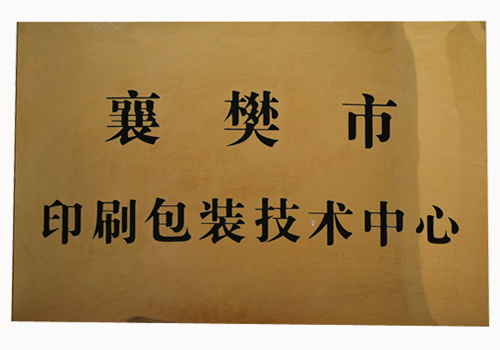 襄樊市
印刷包装技术中心